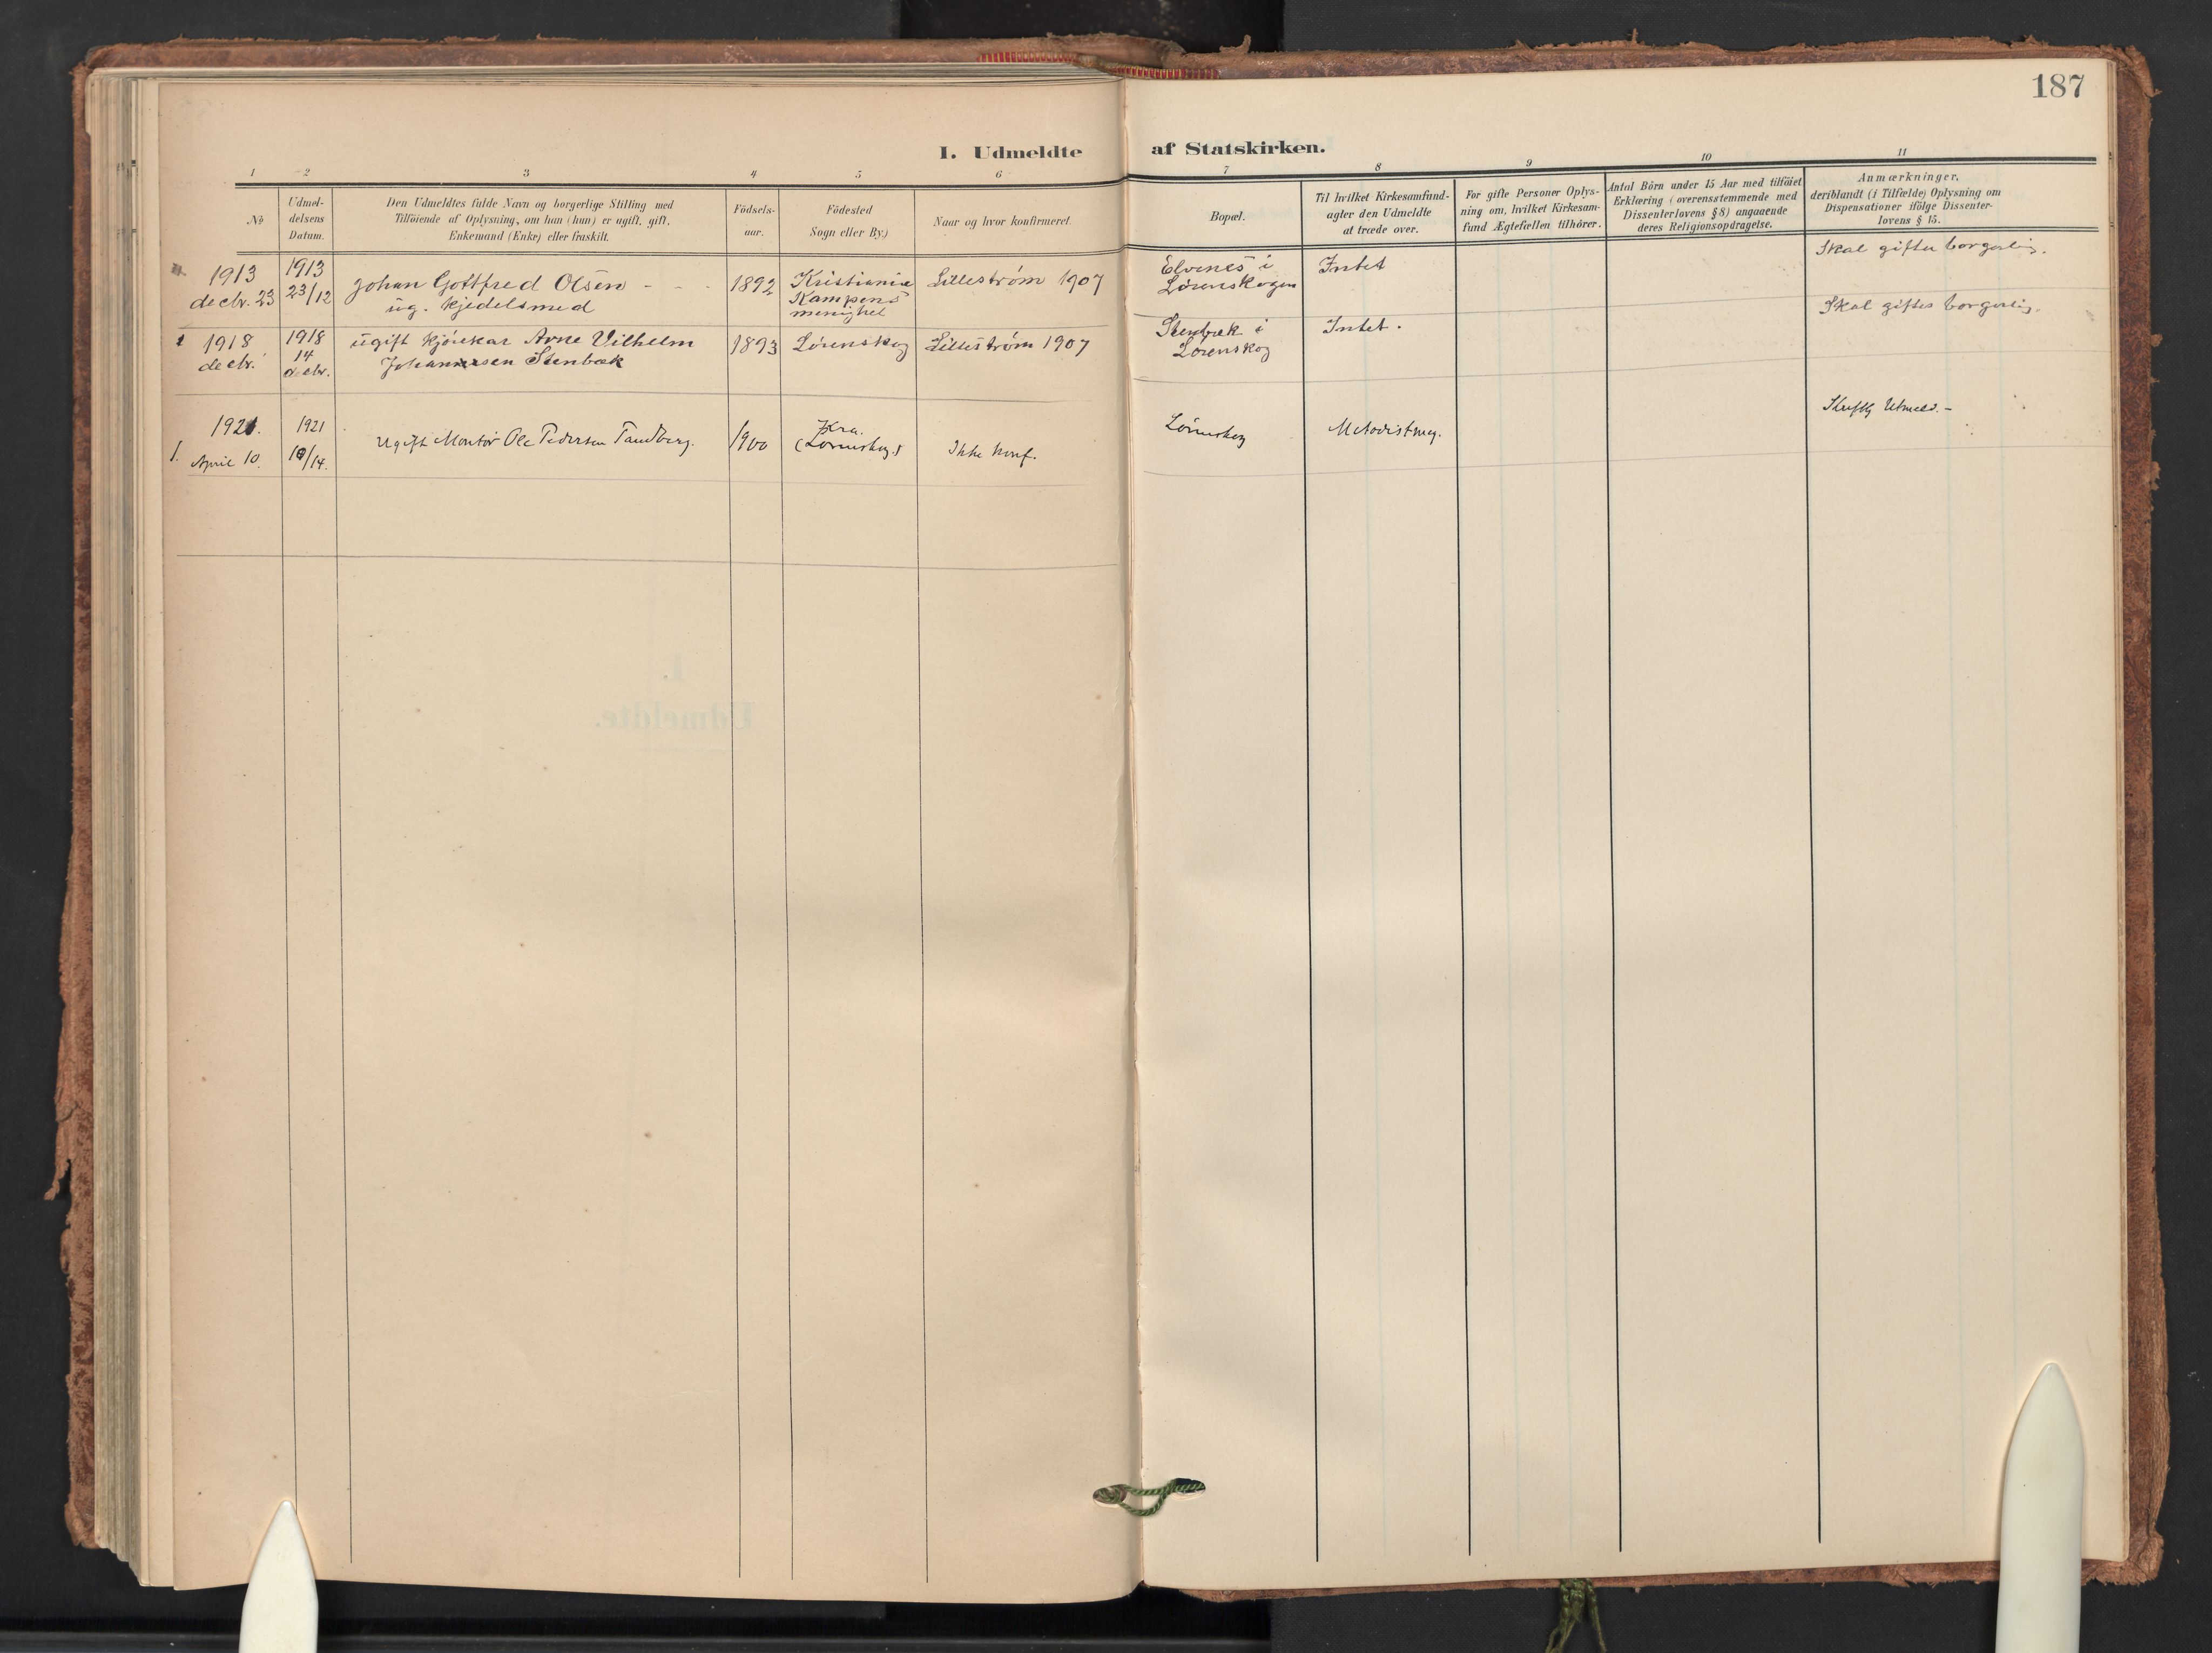 187
I. Udmeldte af Statskirken.
1 2 3 4 5 6 7 8 9 10 11
No
Udmel-
delsens
Datum.
Den Udmeldtes fulde Navn og borgerlige Stilling med
Tilföiende af Oplysning, om han (hun) er ugift, gift,
Enkemand (Enke) eller fraskilt.
Födsels-
aar.
Födested
Sogn eller By.)
Naar og hvor konfirmeret.
Bopæl.
Til hvilket Kirkesamfund-
agter den Udmeldte
at træde over.
For gifte Personer Oplys-
ning om, hvilket Kirkesam-
fund Ægtefællen tilhörer.
Antal Börn under 15 Aar med tilföiet
Erklæring (overensstemmende med
Dissenterlovens § 8) angaaende
deres Religionsopdragelse.
Anmærkninger,
deriblandt (i Tilfælde) Oplysning om
Dispensationer ifölge Dissenter-
lovens § 15.
1913
decbr. 23
1913
23/12
Johan Gottfred Olsen - - -
ug. kjedelsmed
1892
Kristiania
Kampens
menighet
Lillestrøm 1907
Elvenes i
Lørenskogen
Intet
Skal giftes borgerlig.
1 1918
decbr.
1918
14
decbr.
ugift kjørekar Arne Vilhelm
Johannesen Stenbæk
1893
Lørenskog
Lillestrøm 1907
Stenbæk i
Lørenskog
Intet.
Skal giftes borgerlig.
1921.
1. April 10.
1921
10/14.
Ugift Montør Ole Pedersen Tandberg.
1900
Kra.
(Lørenskog.)
Ikke konf.
Lørenskog
Metodistmeg.
Skriftlg Utmeld. -